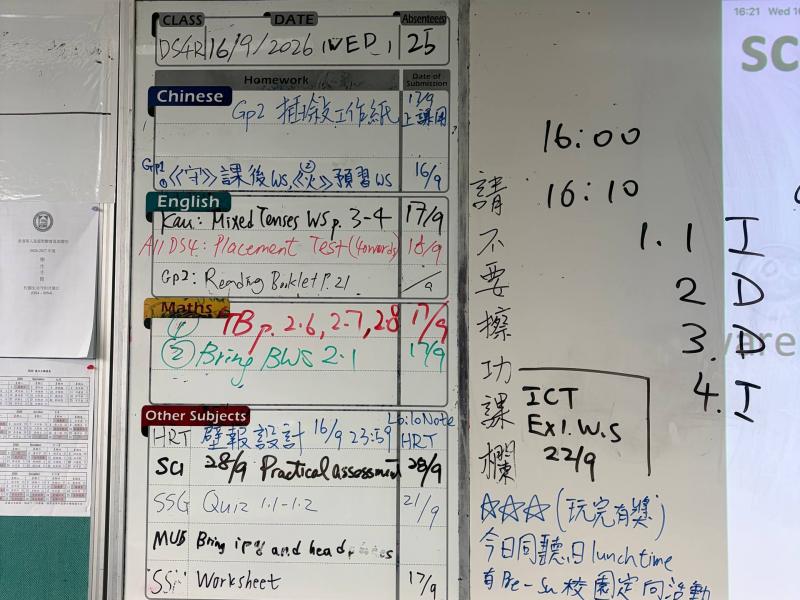 CLASS DATE Absentees
DS4R 16/9/2026 (WED) 25
Homework Date of Submission
Chinese
Gp2 插敍工作紙 17/9 上課用
Gp1 《守》課後WS, 《火》預習WS 16/9
English
Kau: Mixed Tenses WS p. 3-4 17/9
All DS4: Placement Test (4 words) 18/9
Gp2: Reading Booklet P. 21 /9
Maths
① TB p. 2.6, 2.7, 2.8 17/9
② Bring BWS 2.1 17/9
Other Subjects
HRT 壁報設計 16/9 23:59 LoiloNote HRT
SCI 28/9 Practical assessment 28/9
SSG Quiz 1.1-1.2 21/9
MUS Bring ipad and head
SSi Worksheet 17/9
16:00
16:10
請不要擦功課欄
1. 1 I
2 D
3. D
4. I
ICT
Ex1. W.S
22/9
☆☆☆ (玩完有獎)
今日同聽日 lunch time
有Be-Su校園定向活動
16:21 Wed 16
SC
ware